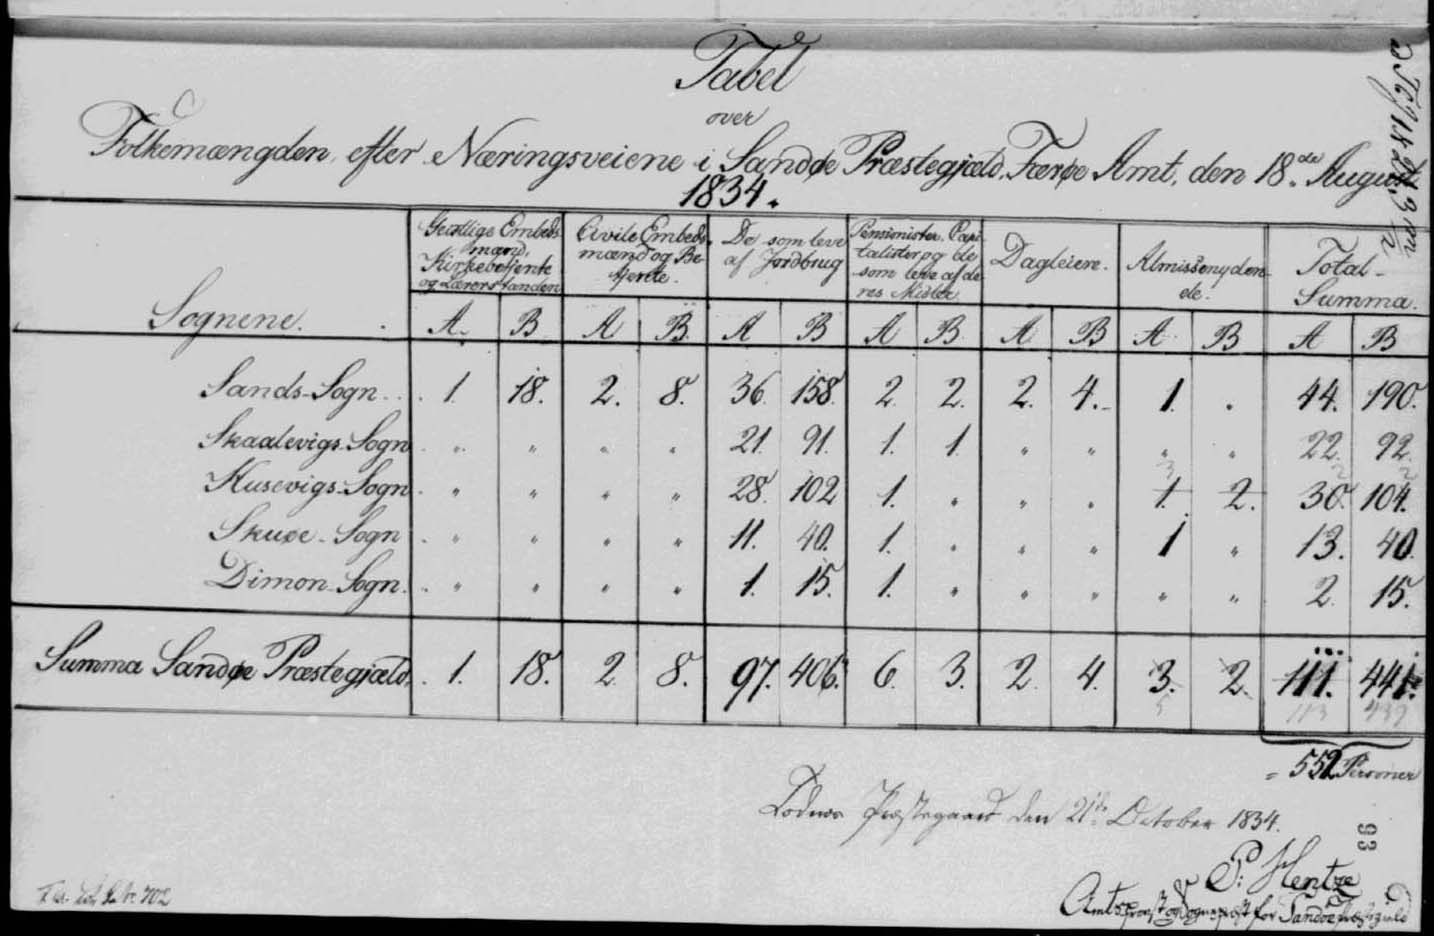 Tabel
over
Folkemængden efter Næringsveiene i Sandøe Præstegjæld, Færøe Amt, den 18de August
1834.
Sognene. Geistlige Embedsmænd, Kirkebetjente og Lærerstanden Civile Embedsmænd og Betjente. De som leve af Jordbrug Pensionister, Capitalister og de som leve af deres Midler Dagleiere. Almissenydende. Total-Summa.
A. B. A B. A B A B. A B A B A B
Sands-Sogn. 1. 18. 2. 8. 36. 158. 2. 2. 2. 4. 1. . 44. 190.
Skaalevigs-Sogn " " " " 21. 91. 1. 1. " " " " 22. 92.
Husevigs-Sogn " " " " 28. 102 1. " " " 1. 2. 30. 104.
3 2 2
Skuøe-Sogn " " " " 11. 40. 1. " " " 1 " 13. 40.
Dimon-Sogn. " " " " 1. 15. 1. " " " " " 2. 15.
Summa Sandøe Præstegjæld. 1. 18. 2. 8. 97. 406. 6. 3. 2. 4. 3. 2. 111. 441.
5 113 439
= 552 Personer
Præstegaard den 21de October 1834.
P: Hentze
Amtsprovst og Sognepræst for Sandøe
93